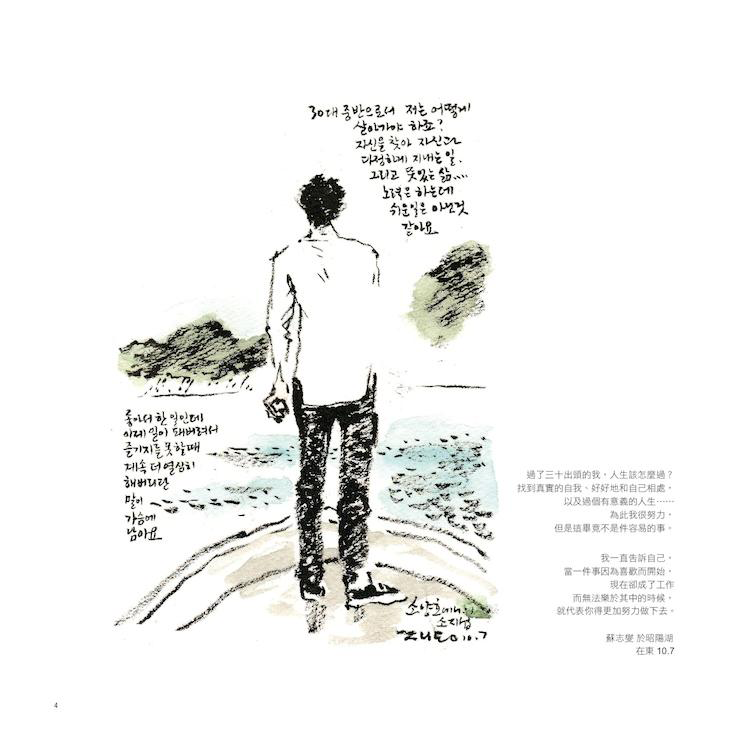 30대 중반으로서 저는 어떻게
살아가야 하죠?
자신을 찾아 자신과
다정하게 지내는 일.
그리고 뜻있는 삶....
노력은 하는데
쉬운일은 아닌것
같아요
좋아서 한 일인데
이제 일이 돼버려서
즐기지를 못할때
계속 더 열심히
해버리란
말이
가슴에
남아요
소양호에서
소지섭
10.7
過了三十出頭的我，人生該怎麼過？
找到真實的自我、好好地和自己相處，
以及過個有意義的人生⋯⋯
為此我很努力，
但是這畢竟不是件容易的事。
我一直告訴自己，
當一件事因為喜歡而開始，
現在卻成了工作
而無法樂於其中的時候，
就代表你得更加努力做下去。
蘇志燮 於昭陽湖
在東 10.7
4